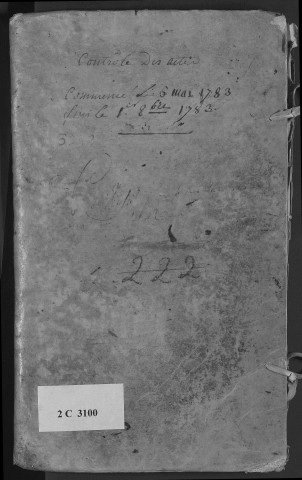 Contrôle Des actes
Commencé Le 6 mai 1783
fini le 1er 8bre 1783.
222
2 C 3100